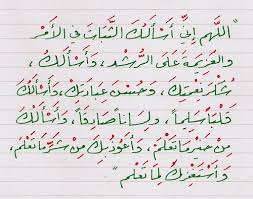 "اللَّهُمَّ إِنِّي أَسْأَلُكَ الثَّبَاتَ فِي الأَمْرِ
والعَزِيمَةَ عَلَى الرُّشْدِ، وَأَسْأَلُكَ
شُكْرَ نِعْمَتِكَ، وَحُسْنَ عِبَادَتِكَ، وَأَسْأَلُكَ
قَلْبَاً سَلِيماً، ولِسَاناً صَادِقاً، وَأَسْأَلُكَ
مِنْ خَيْرِ مَا تَعْلَمُ، وَأَعُوذُ بِكَ مِنْ شَرِّ مَا تَعْلَمُ،
وَأَسْتَغْفِرُكَ لِمَا تَعْلَمُ"